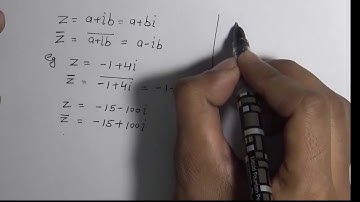 z = a+ib = a+bi
z̅ = \overline{a+ib} = a-ib
Eg z = -1+4i
z̅ = \overline{-1+4i} = -1-
z = -15-100i
z̅ = -15+100i